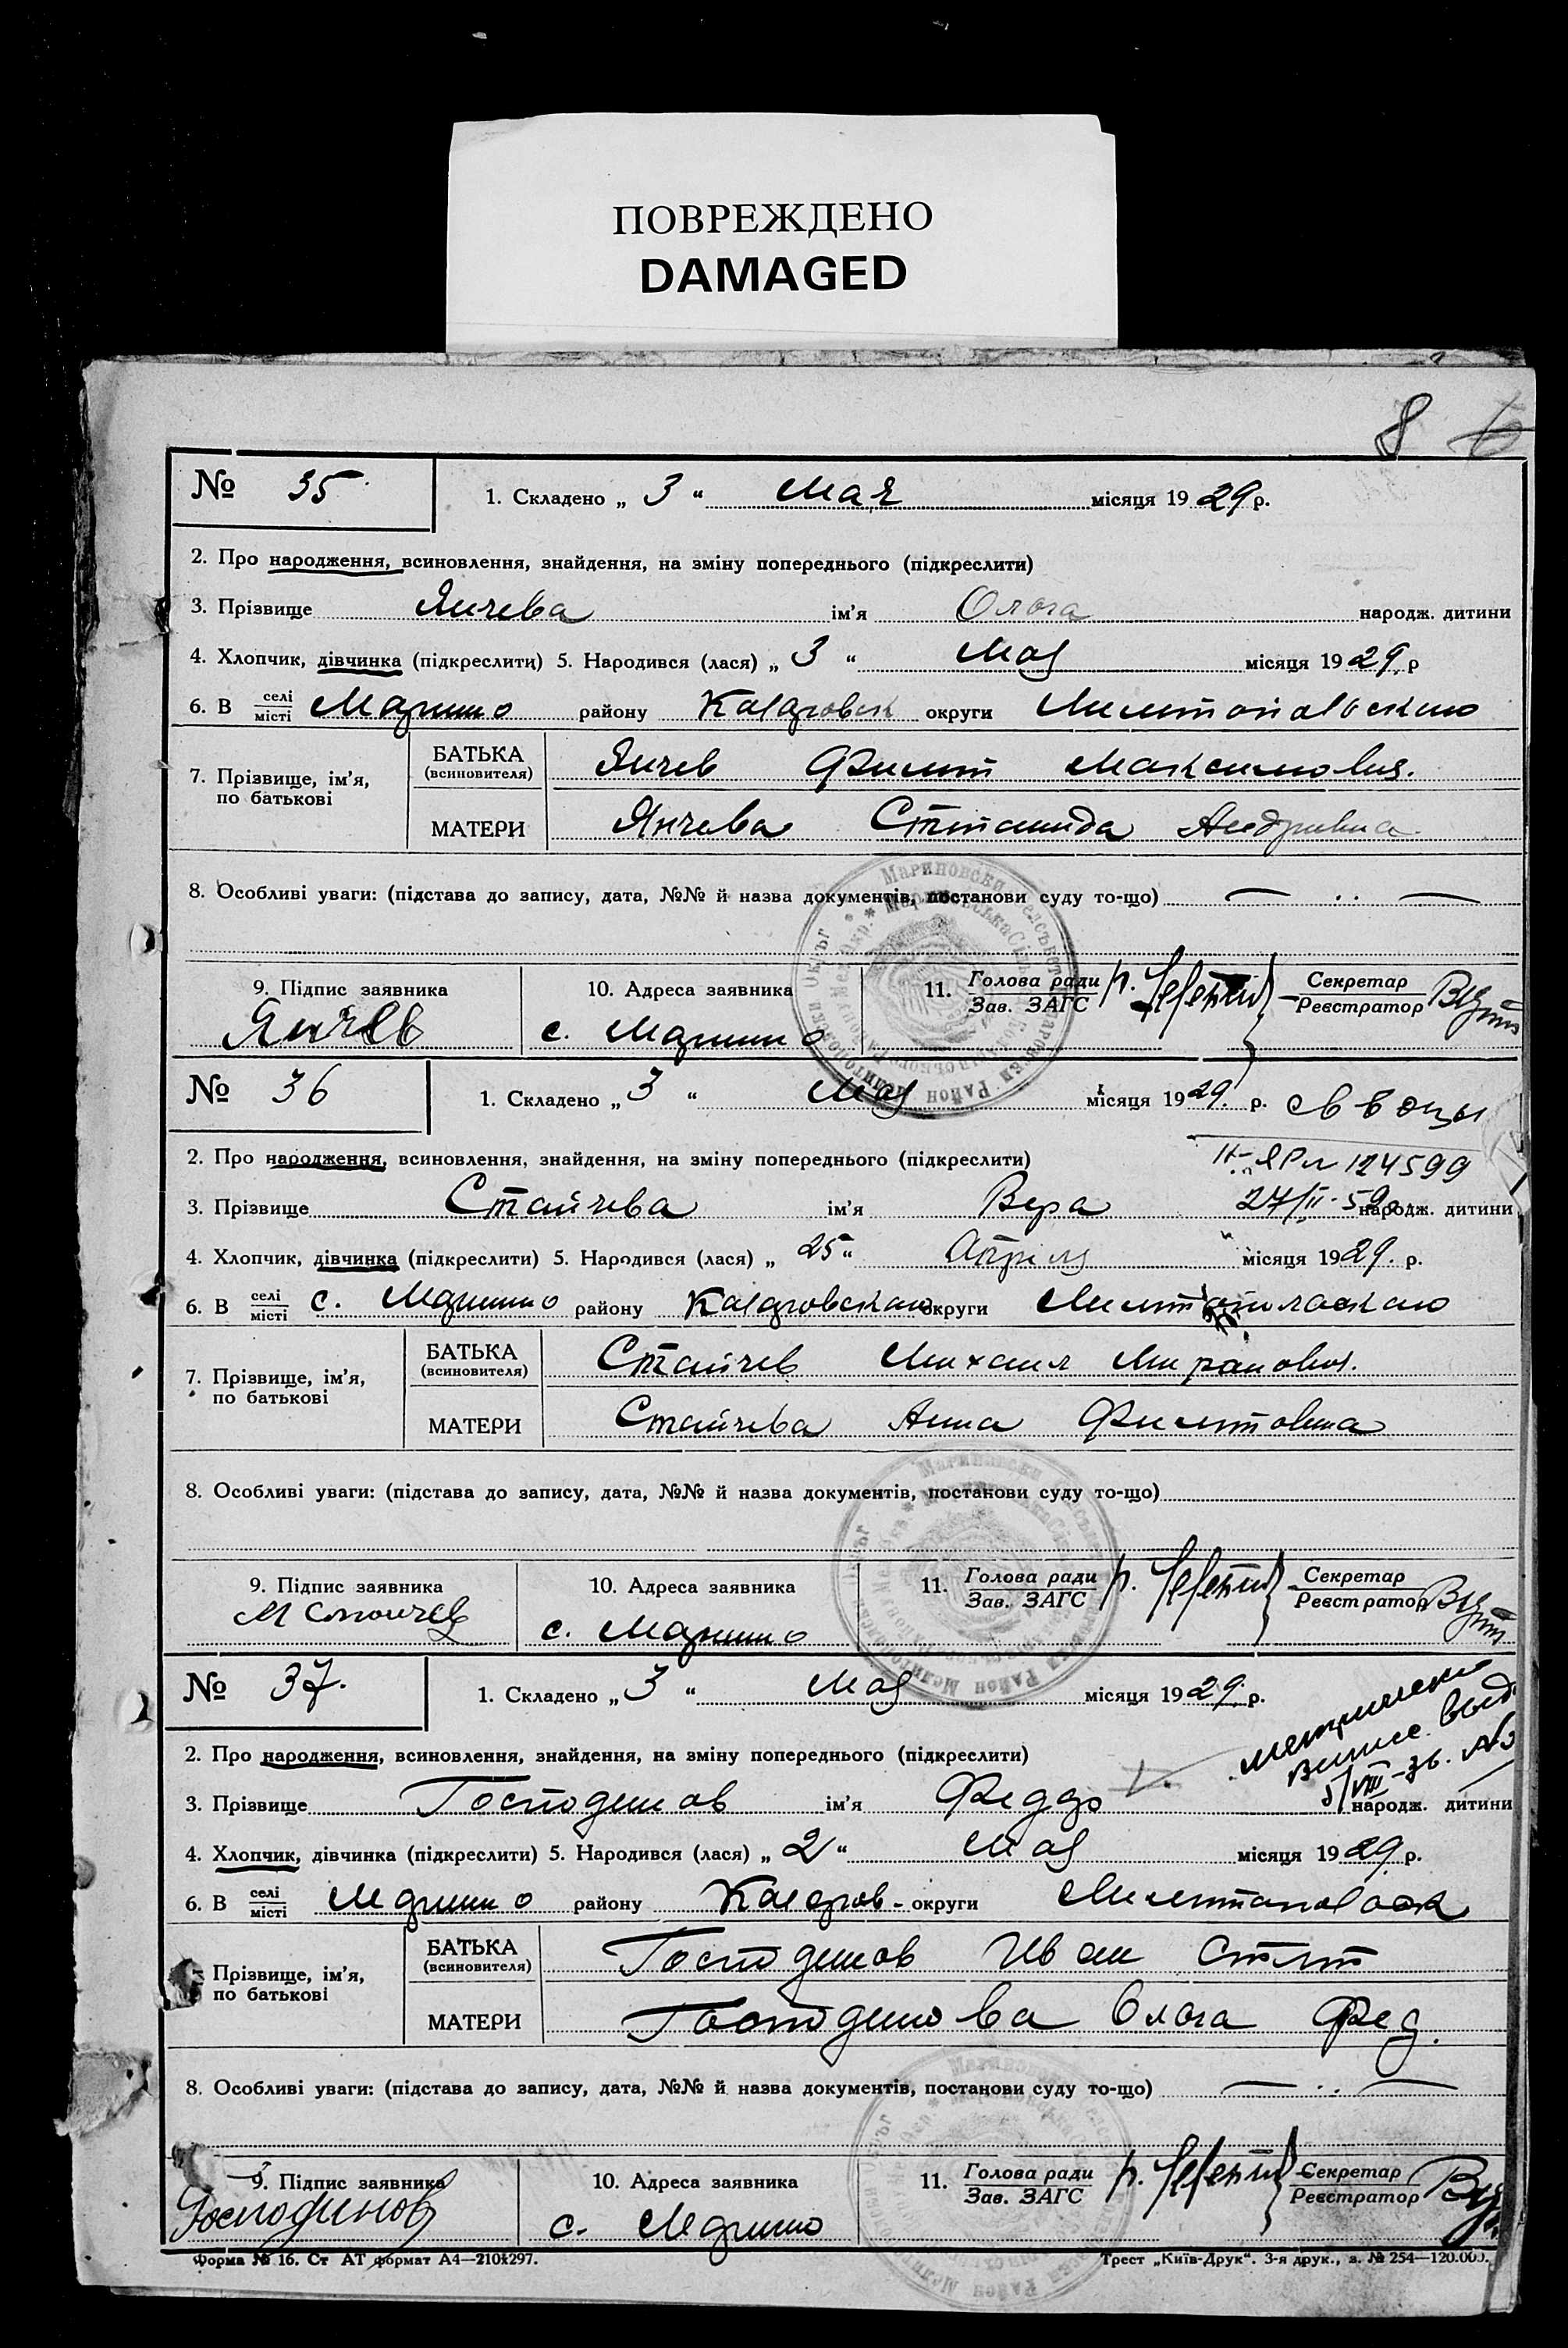 ПОВРЕЖДЕНО
DAMAGED
8
№ 35
1. Складено „ 3 “ мая місяця 1929 р.
2. Про народження, всиновлення, знайдення, на зміну попереднього (підкреслити)
3. Прізвище Янчева ім’я Ольга народж. дитини
4. Хлопчик, дівчинка (підкреслити) 5. Народився (лася) „ 3 “ мая місяця 1929 р
6. В селі місті Марино району Коларовск округи
7. Прізвище, ім’я, по батькові
БАТЬКА (всиновителя) Янчев Филипп Максимович.
МАТЕРИ Янчева Степанида Андриевна
8. Особливі уваги: (підстава до запису, дата, №№ й назва документів, постанови суду то-що) — .. —
9. Підпис заявника 10. Адреса заявника 11. Голова ради Зав. ЗАГС Секретар Реєстратор
Янчев с. Марино
№ 36
1. Складено „ 3 “ мая місяця 1929. р.
2. Про народження, всиновлення, знайдення, на зміну попереднього (підкреслити)
124599
3. Прізвище Стойчева ім’я Вера 27/II-59 народж. дитини
4. Хлопчик, дівчинка (підкреслити) 5. Народився (лася) „ 25 “ Апреля місяця 1929. р.
6. В селі місті с. Марино району Коларовскаго округи
7. Прізвище, ім’я, по батькові
БАТЬКА (всиновителя) Стойчев Михаил Миронович.
МАТЕРИ Стойчева Анна Филиповна
8. Особливі уваги: (підстава до запису, дата, №№ й назва документів, постанови суду то-що)
9. Підпис заявника 10. Адреса заявника 11. Голова ради Зав. ЗАГС Секретар Реєстратор
М Стоичев с. Марино
№ 37.
1. Складено „ 3 “ мая місяця 1929 р.
2. Про народження, всиновлення, знайдення, на зміну попереднього (підкреслити)
3. Прізвище Господинов ім’я Федор народж. дитини
4. Хлопчик, дівчинка (підкреслити) 5. Народився (лася) „ 2 “ мая місяця 1929 р.
6. В селі місті Марино району Коларов- округи
Прізвище, ім’я, по батькові
БАТЬКА (всиновителя) Господинов Иван
МАТЕРИ Господинова Ольга Фед.
8. Особливі уваги: (підстава до запису, дата, №№ й назва документів, постанови суду то-що) — .. —
9. Підпис заявника 10. Адреса заявника 11. Голова ради Зав. ЗАГС Секретар Реєстратор
Господинов с. Марино
Форма № 16. Ст АТ формат А4—210x297. Трест „Київ-Друк“. 3-я друк., з. № 254—120.000.